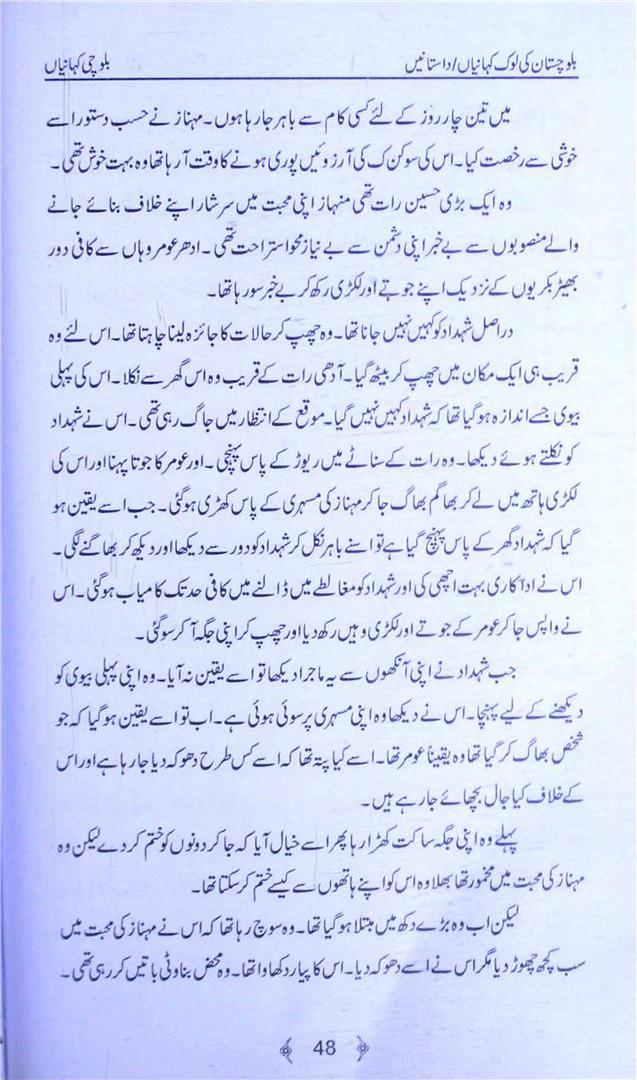 بلوچستان کی لوک کہانیاں/داستانیں
بلوچی کہانیاں
میں تین چار روز کے لئے کسی کام سے باہر جا رہا ہوں۔ مہناز نے حسب دستور اسے
خوشی سے رخصت کیا۔ اس کی سوکن ک کی آرزوئیں پوری ہونے کا وقت آ رہا تھا وہ بہت خوش تھی۔
وہ ایک بڑی حسین رات تھی منہاز اپنی محبت میں سرشار اپنے خلاف بنائے جانے
والے منصوبوں سے بے خبر اپنی دشمن سے بے نیاز محو استراحت تھی۔ ادھر عومر وہاں سے کافی دور
بھیڑ بکریوں کے نزدیک اپنے جوتے اور لکڑی رکھ کر بے خبر سو رہا تھا۔
دراصل شہداد کو کہیں نہیں جانا تھا۔ وہ چھپ کر حالات کا جائزہ لینا چاہتا تھا۔ اس لئے وہ
قریب ہی ایک مکان میں چھپ کر بیٹھ گیا۔ آدھی رات کے قریب وہ اس گھر سے نکلا۔ اس کی پہلی
بیوی جسے اندازہ ہو گیا تھا کہ شہداد کہیں نہیں گیا۔ موقع کے انتظار میں جاگ رہی تھی۔ اس نے شہداد
کو نکلتے ہوئے دیکھا۔ وہ رات کے سناٹے میں ریوڑ کے پاس پہنچی۔ اور عومر کا جوتا پہنا اور اس کی
لکڑی ہاتھ میں لے کر بھاگم بھاگ جا کر مہناز کی مسہری کے پاس کھڑی ہو گئی۔ جب اسے یقین ہو
گیا کہ شہداد گھر کے پاس پہنچ گیا ہے تو اسنے باہر نکل کر شہداد کو دور سے دیکھا اور دیکھ کر بھاگنے لگی۔
اس نے اداکاری بہت اچھی کی اور شہداد کو مغالطے میں ڈالنے میں کافی حد تک کامیاب ہو گئی۔ اس
نے واپس جا کر عومر کے جوتے اور لکڑی وہیں رکھ دیا اور چھپ کر اپنی جگہ آ کر سو گئی۔
جب شہداد نے اپنی آنکھوں سے یہ ماجرا دیکھا تو اسے یقین نہ آیا۔ وہ اپنی پہلی بیوی کو
دیکھنے کے لیے پہنچا۔ اس نے دیکھا وہ اپنی مسہری پر سوئی ہوئی ہے۔ اب تو اسے یقین ہو گیا کہ جو
شخص بھاگ کر گیا تھا وہ یقیناً عومر تھا۔ اسے کیا پتہ تھا کہ اسے کس طرح دھوکہ دیا جا رہا ہے اور اس
کے خلاف کیا جال بچھائے جا رہے ہیں۔
پہلے وہ اپنی جگہ ساکت کھڑا رہا پھر اسے خیال آیا کہ جا کر دونوں کو ختم کر دے لیکن وہ
مہناز کی محبت میں مخمور تھا بھلا وہ اس کو اپنے ہاتھوں سے کیسے ختم کر سکتا تھا۔
لیکن اب وہ بڑے دکھ میں مبتلا ہو گیا تھا۔ وہ سوچ رہا تھا کہ اس نے مہناز کی محبت میں
سب کچھ چھوڑ دیا مگر اس نے اسے دھوکہ دیا۔ اس کا پیار دکھاوا تھا۔ وہ محض بناوٹی باتیں کر رہی تھی۔
48